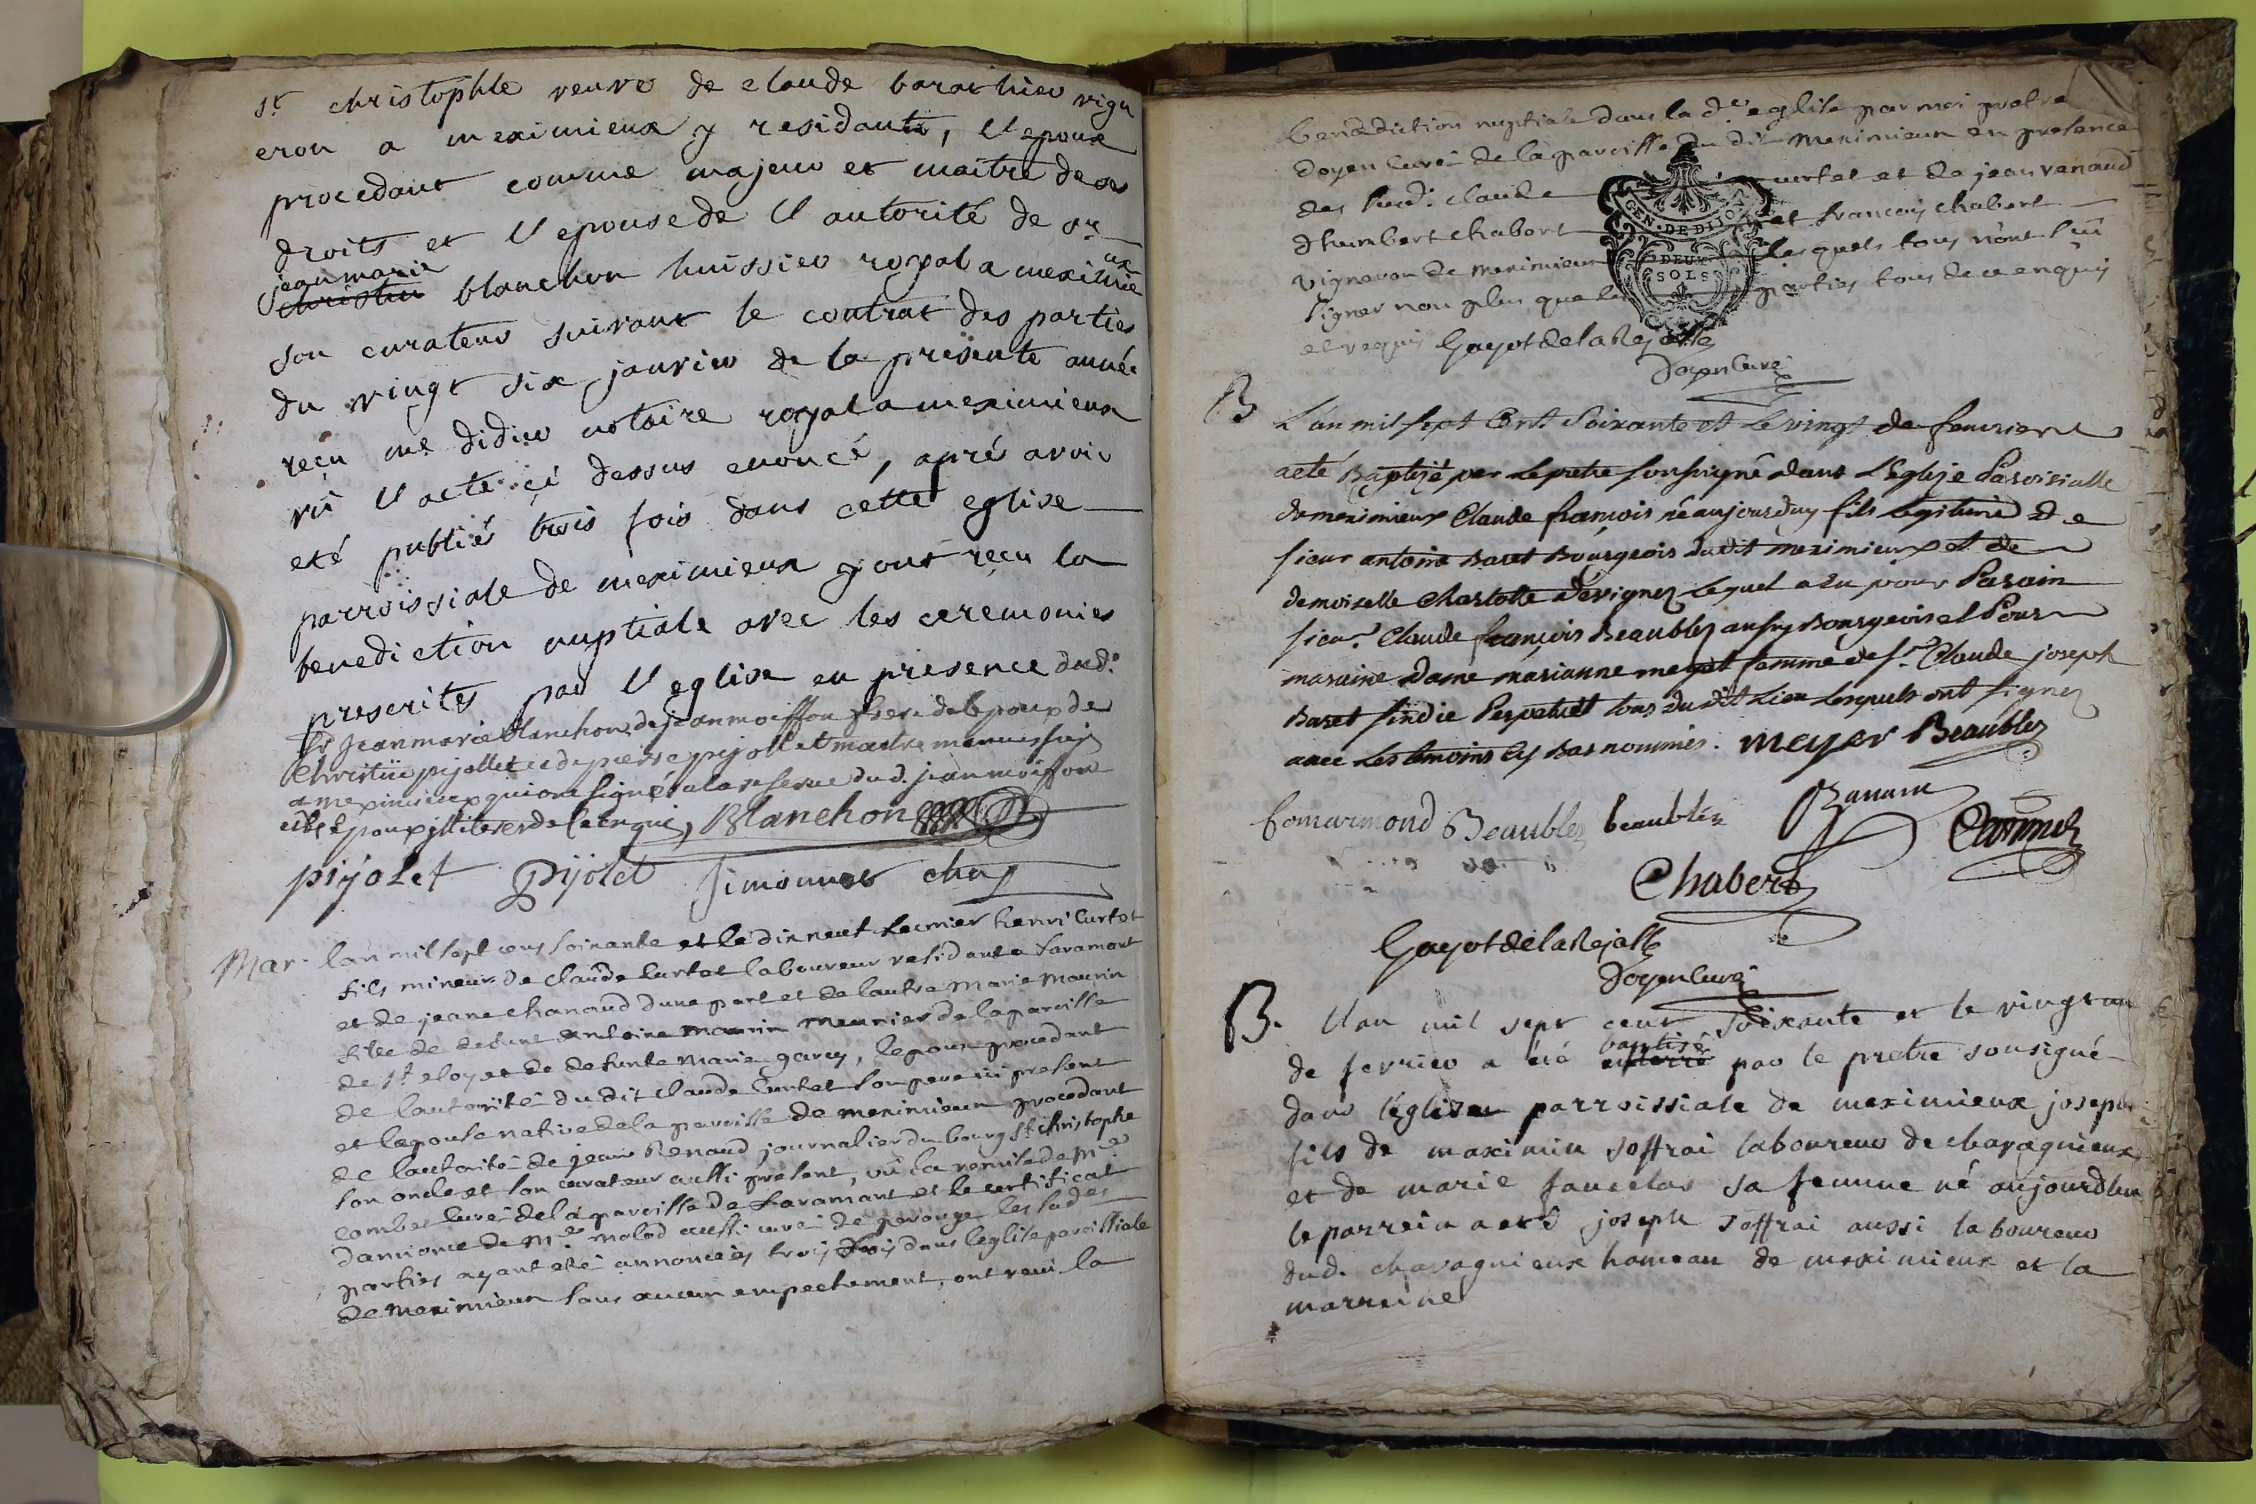 st christophle veuve de claude barathieu vign
eron a meximieux y residante, l'epoux
procedant comme majeur et maitre de ses
droits et l'epouse de l'autorité de sr
jean marie
christin blanchon huissier royal a meximieux
son curateur suivant le contrat des parties
du vingt six janvier de la presente année
reçu me didier notaire royal a meximieux
vû l'acte çi dessus enoncé, aprés avoir
eté publiés trois fois dans cette eglise
parroissiale de meximieux y ont reçu la
benediction nuptiale avec les ceremonies
prescrites par l'eglise en presence dud.
sr Jean marie blanchon, de jean moiffon frere de lepoux de
Christin pijollet et de pierre pijollet maitre menuisier
a meximieux qui ont signé a la reserve dud. jean moiffon
et lepoux illiteres de ce enquis, Blanchon
pijolet Pijolet simonnet
Mar. lan mil sept cens soixante et le dixneuf fevrier henri Curtet
fils mineur de Claude Curtet laboureur residant a faramant
et de jeane chanaud dune part et de lautre Marie Maurin
fille de defunt Antoine Maurin Meunier de la paroisse
de st eloy et de defunte Marie garcy, lepoux procedant
de lautorité du dit Claude Curtet son pere ici present
et lepouse native de la paroisse de meximieux procedant
de lautorité de jean Renaud journalier du bourg st christophe
son oncle et son curateur aussi present, vû la remise de Mre
combet Curé de la paroisse de faramant et le certificat
damione de Mre malod aussi curé de perouge les susdes
parties ayant eté annoncées trois fois dans leglise paroissiale
de Meximieux sans aucun empechement, ont recu la
benediction nuptiale dans la de eglise par moi pretre
doyen Curé de la paroisse du dit Meximieux en presence
des susd. claude curtet et de jean renaud
dhumbert chabert et francois chabert
vigneron de meximieux lesquels tous n'ont sçu
signer non plus que les parties tous de ce enquis
et requis Gayot de la Rejasse
Doyen Curé
GEN. DE DIJON
DEUX
SOLS
B L'an mil sept Cent Soixante et Le vingt de fevrier
a eté Baptizé par Le pretre Soussigné dans L'Eglize Paroisialle
de meximieux Claude françois né aujourduy fils Legitime de
sieur antoine Baret Bourgeois dudit meximieux et de
demoiselle Charlotte Devignez Lequel a Eu pour Parain
sieur Claude françois Beaublez aussy Bourgeois et Pour
maraine dame marianne meyet femme de Sr. Claude joseph
Baret sindic Perpetuel tous du dit Lieu Lesquels ont signez
avec Les temoins Cy Bas nommés. meyer Beaublez
Beaublez beaublez
Chabert
Gayot de la Rejasse
Doyen Curé
B. L'an mil sept cent soixante et le vingt un
baptisé
de fevrier a été enterré par le pretre sousigné
dans l'église parroissiale de meximieux joseph
fils de maximin soffrai laboureur de chavagnieux
et de marie faucelas sa femme né aujourdhui
le parrein a eté joseph soffrai aussi laboureur
dud. chavagnieux hameau de meximieux et la
marreine